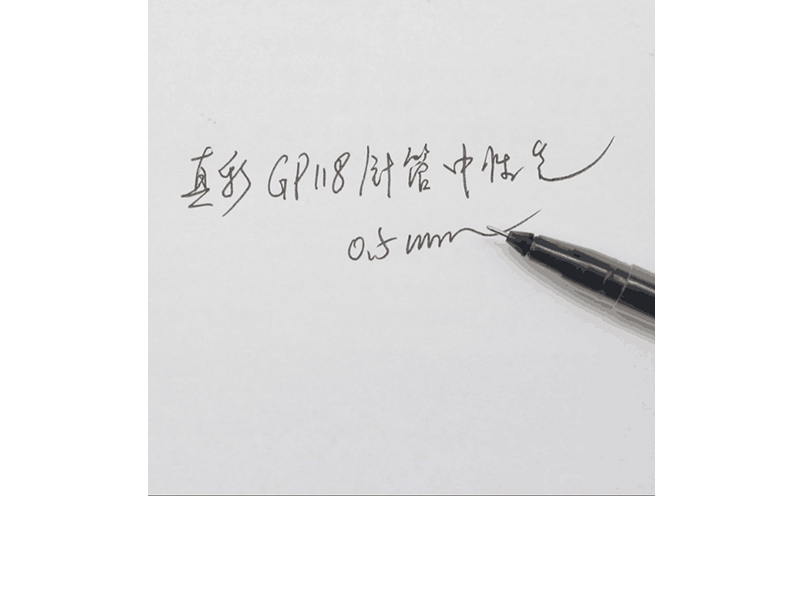 真彩GP118针管中性笔
0.5mm